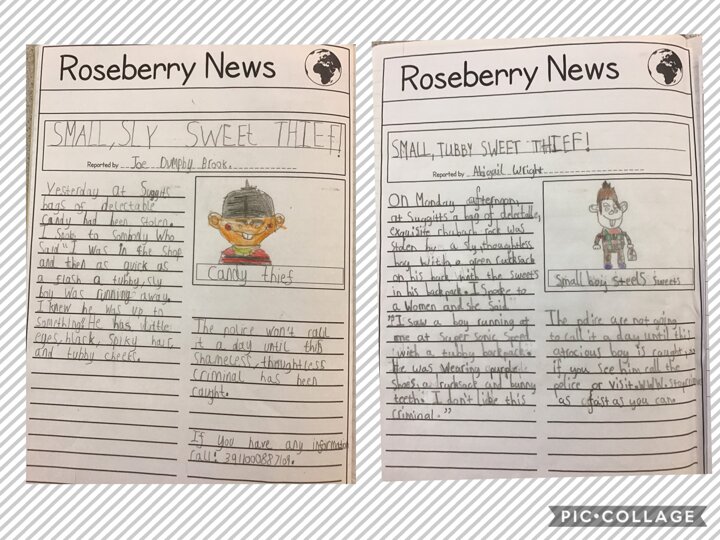 Roseberry News
SMALL, SLY SWEET THIEF!
Reported by Joe Dumphy Brook.
Yesterday at Suggits
bags of delectable
candy had been stolen.
I spoke to sombody who
said " I was in the shop
and then as quick as
a flash a tubby, sly
boy was running away.
I knew he was up to
something. He has little
eyes, black, spiky hair,
and tubby cheeks.
Candy thief
The police won't call
it a day until this
shameless, thoughtless
criminal has been
caught.
If you have any information
call:
Roseberry News
SMALL, TUBBY SWEET THIEF!
Reported by Abigail Wright
On Monday afternoon,
at Suggitts a bag of delectable,
exquisite rhubarb rock was
stolen by a sly, thoughtless
boy with a green rucksack
on his back with the sweets
in his backpack. I spoke to
a women and she said
"I saw a boy running at
me at Super Sonic Speed
with a tubby backpack.
He was wearing purple
shoes, a rucksack and bunny
teeth. I don't like this
criminal."
Small boy steels sweets
The police are not going
to call it a day until this
atrocious boy is caught,
if you see him call the
police or visit. WWW.
as fast as you can
PIC•COLLAGE